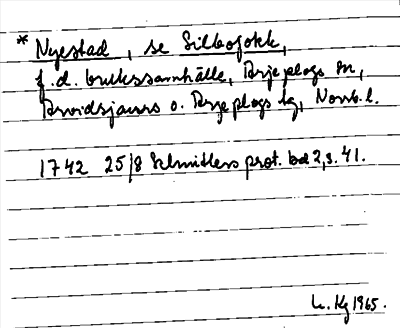 * Nyestad, se Silbojokk,
f.d. brukssamhälle, Arjeplogs sn,
Arvidsjaurs o. Arjeplogs tg, Norrb. l.
1742 25/8 Schnitlers prot. bd 2, s. 41.
Kg 1965.